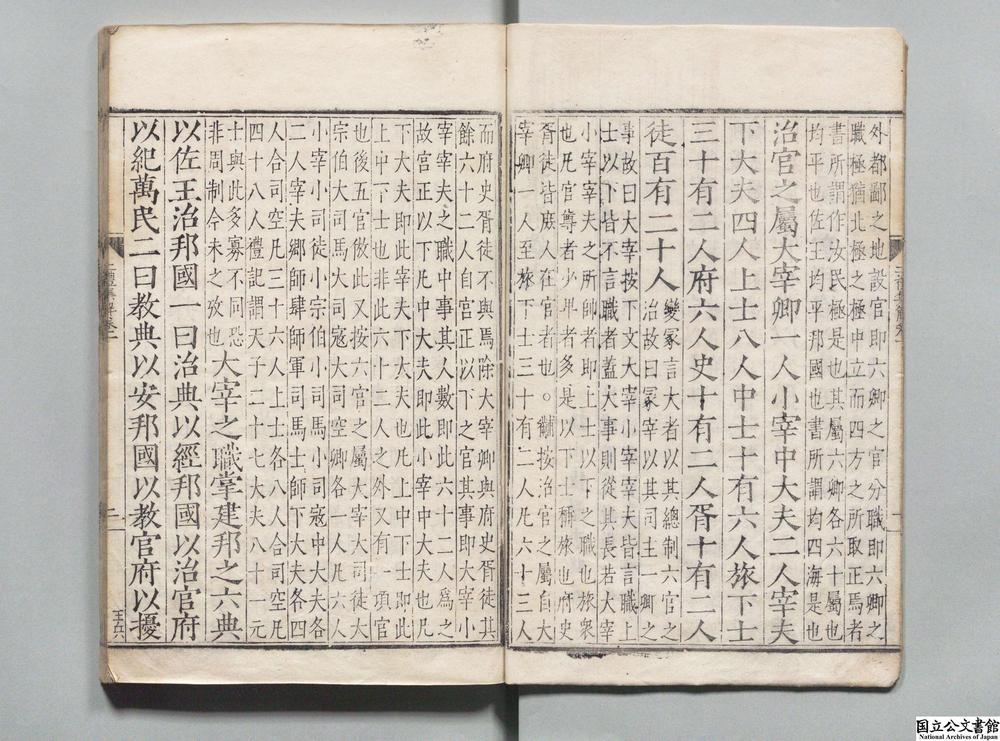 外都鄙之地設官即六卿之官分職即六卿之
職極猶北極之極中立而四方之所取正焉者
書所謂作汝民極是也其屬六卿各六十屬也
均平也佐王均平邦國也書所謂均四海是也
治官之屬大宰卿一人小宰中大夫二人宰夫
下大夫四人上士八人中士十有六人旅下士
三十有二人府六人史十有二人胥十有二人
徒百有二十人
變冢言大者以其總制六官之
治故曰冢宰以其司主一卿之
事故曰大宰按下文大宰小宰宰夫皆言職上
士以下皆不言職者蓋大事則從其長若大宰
小宰宰夫之所帥者即上士以下之職也旅衆
也凡官尊者少卑者多是以下士稱旅也府史
胥徒皆庶人在官者也。讎按治官之屬自大
宰卿一人至旅下士三十有二人凡六十三人
而府史胥徒不與焉除大宰卿與府史胥徒其
餘六十二人自官正以下之官其事即大宰小
宰宰夫之職中事其人數即此六十二人爲之
故宮正以下凡中大夫即此小宰中大夫也凡
下大夫即此宰夫下大夫也凡上中下士即此
上中下士也非此六十二人之外又有一項官
也後五官倣此又按六官之屬大宰大司徒大
宗伯大司馬大司寇大司空卿各一人凡六人
小宰小司徒小宗伯小司馬小司寇中大夫各
二人宰夫鄉師肆師軍司馬士師下大夫各四
人合司空凡三十六人上士各八人合司空凡
四十八人禮記謂天子二十七大夫八十一元
士與此多寡不同恐
非周制今未之攷也
大宰之職掌建邦之六典
以佐王治邦國一曰治典以經邦國以治官府
以紀萬民二曰教典以安邦國以教官府以擾
二
王六
国立公文書館
National Archives of Japan